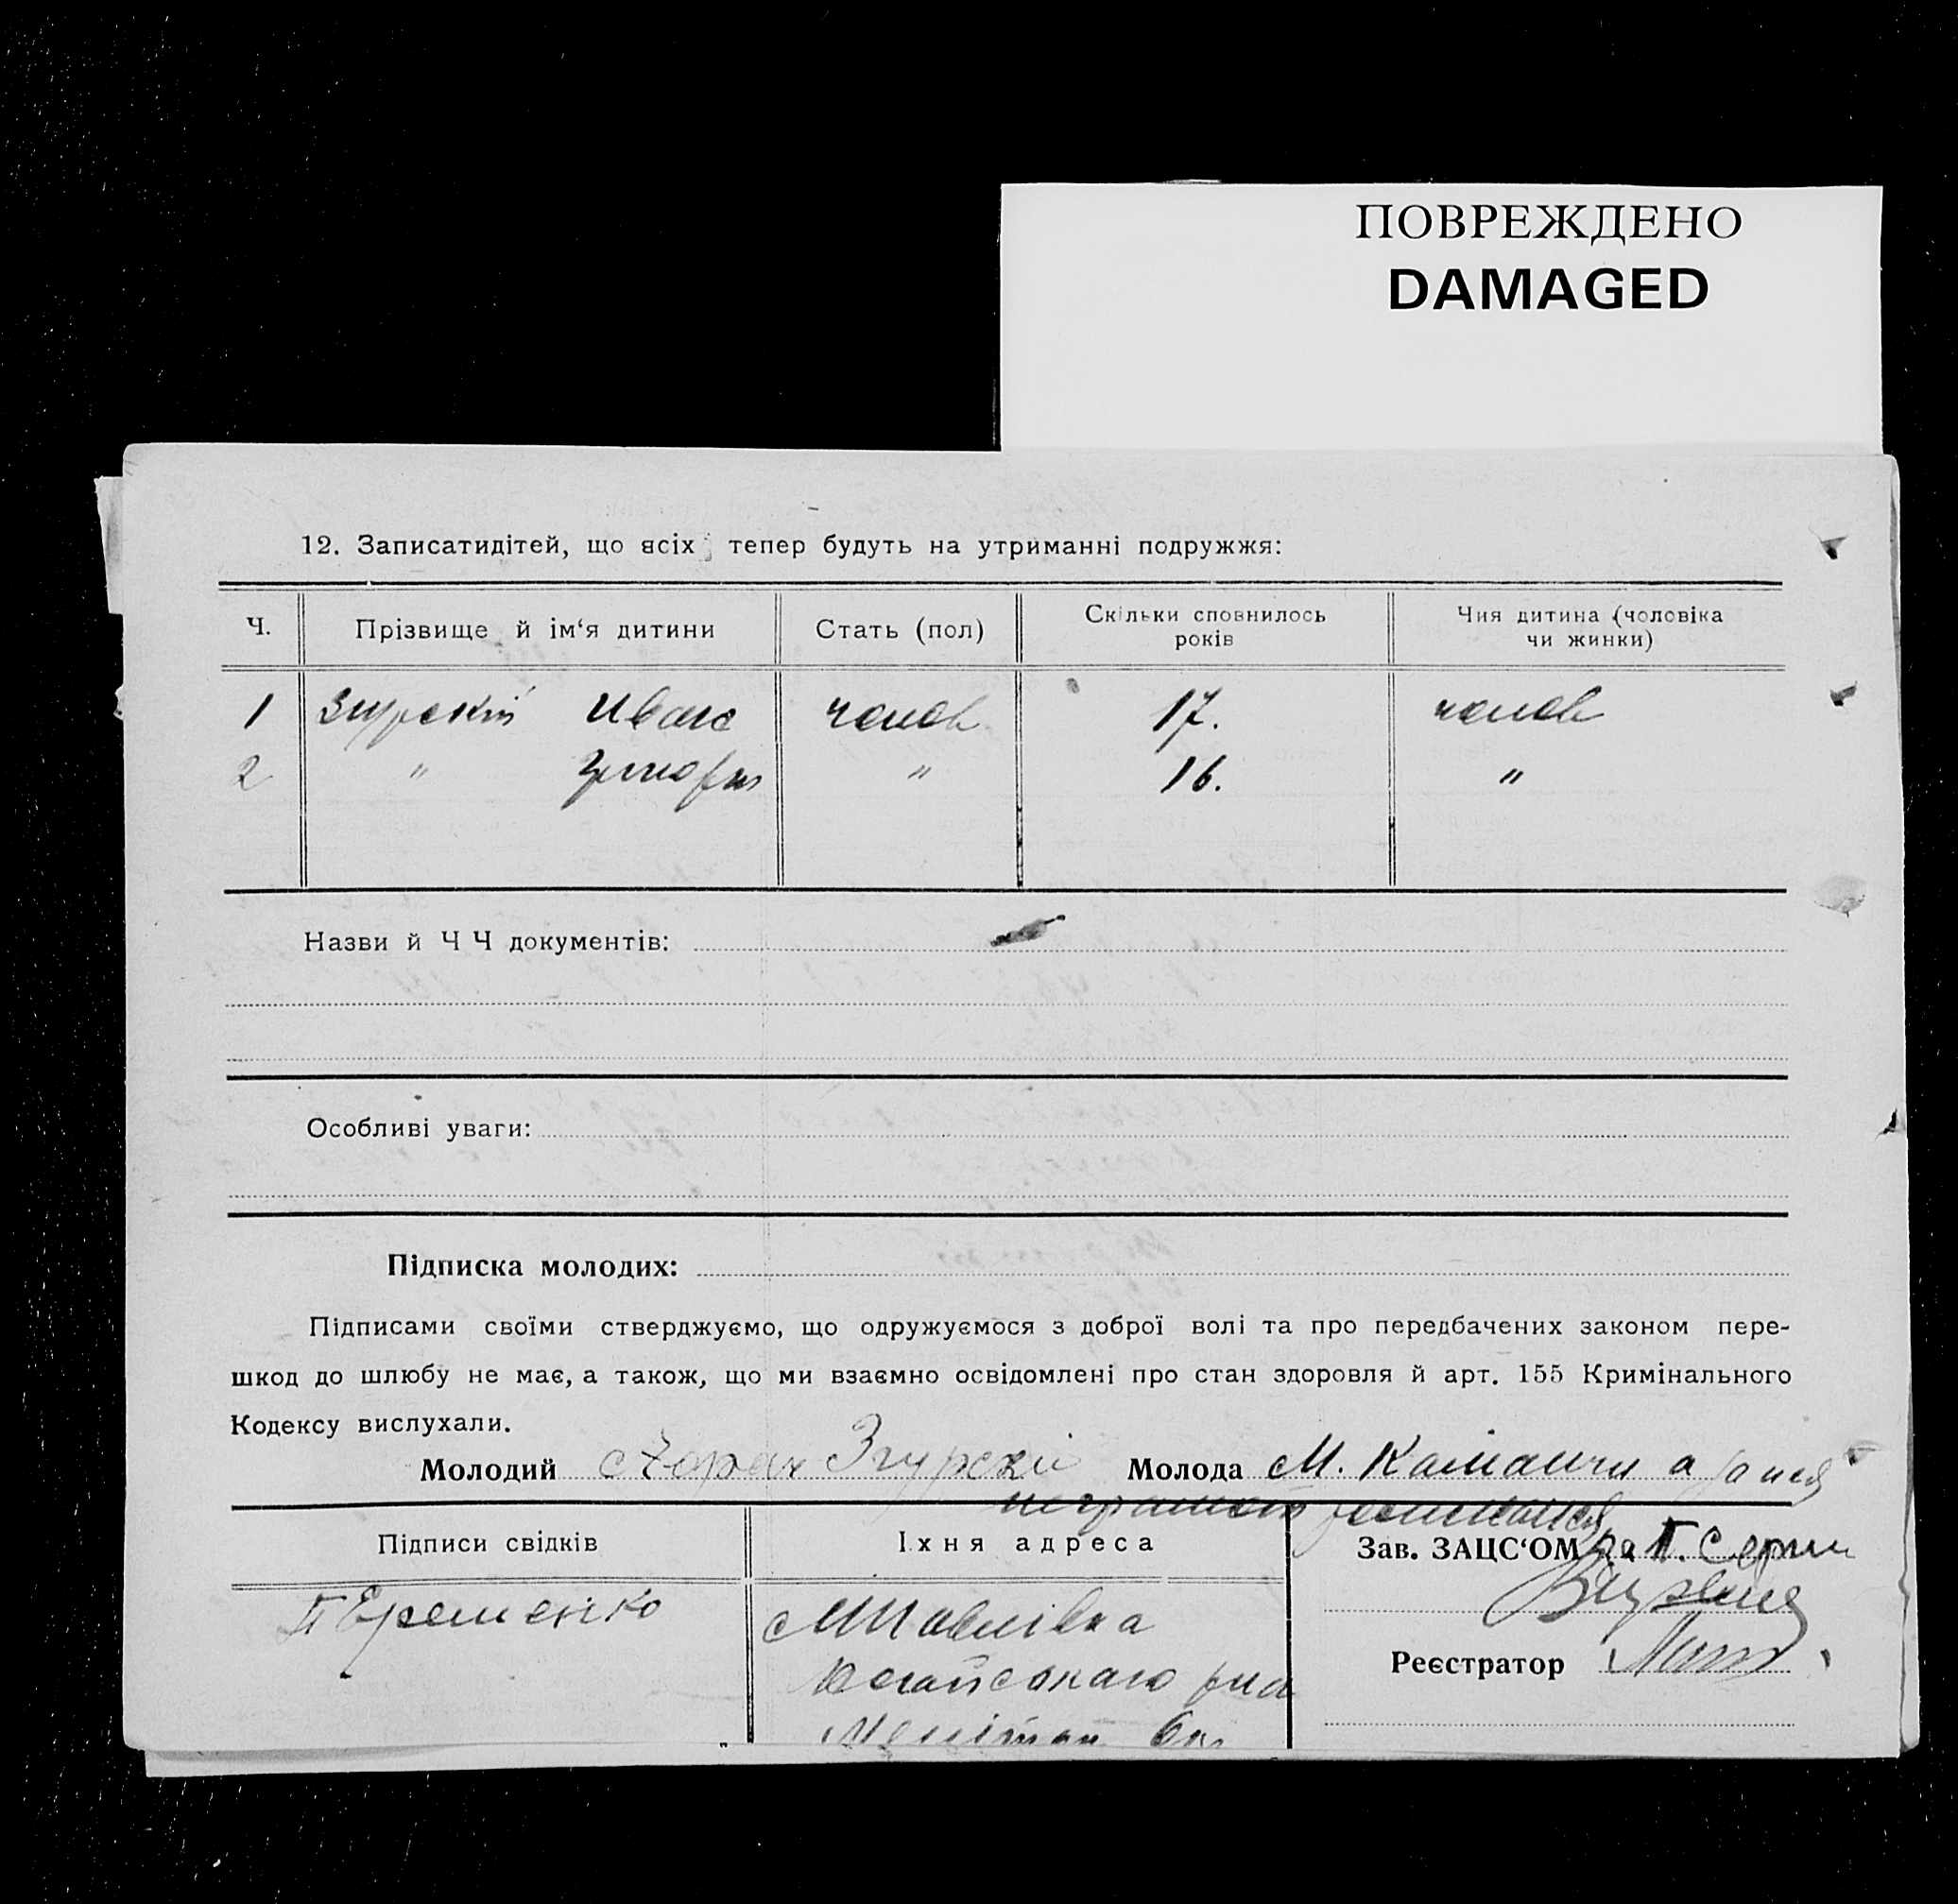 ПОВРЕЖДЕНО
DAMAGED
12. Записатидітей, що всіх тепер будуть на утриманні подружжя:
Ч. Прізвище й ім‘я дитини Стать (пол) Скільки сповнилось років Чия дитина (чоловіка чи жинки)
1 Згурский Иван чолов 17. чолов
2 " " 16. "
Назви й Ч Ч документів:
Особливі уваги:
Підписка молодих:
Підписами своїми стверджуємо, що одружуємося з доброї волі та про передбачених законом пере-
шкод до шлюбу не має, а також, що ми взаємно освідомлені про стан здоровля й арт. 155 Кримінального
Кодексу вислухали.
Молодий Згурскій Молода М.
неграмот
Підписи свідків Їхня адреса Зав. ЗАЦС‘ОМ
П Еременко
Реєстратор